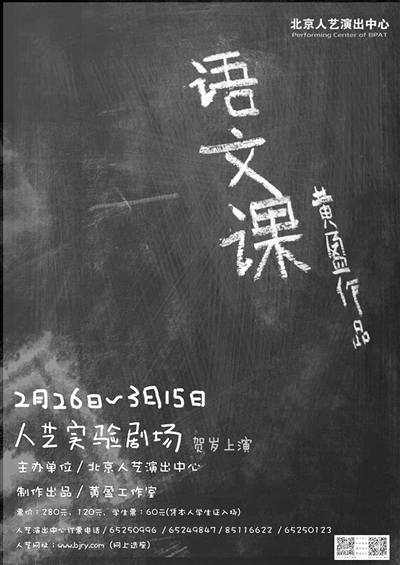 北京人艺演出中心
Performing Center of BPAT
语文课
黄盈作品
2月26日~3月15日
人艺实验剧场 贺岁上演
主办单位/北京人艺演出中心
制作出品/黄盈工作室
票价:280元、120元,学生票:60元(凭本人学生证入场)
人艺演出中心订票电话/65250996 /65249847/85116622 /65250123
人艺网址:www.bjry.com(网上选座)